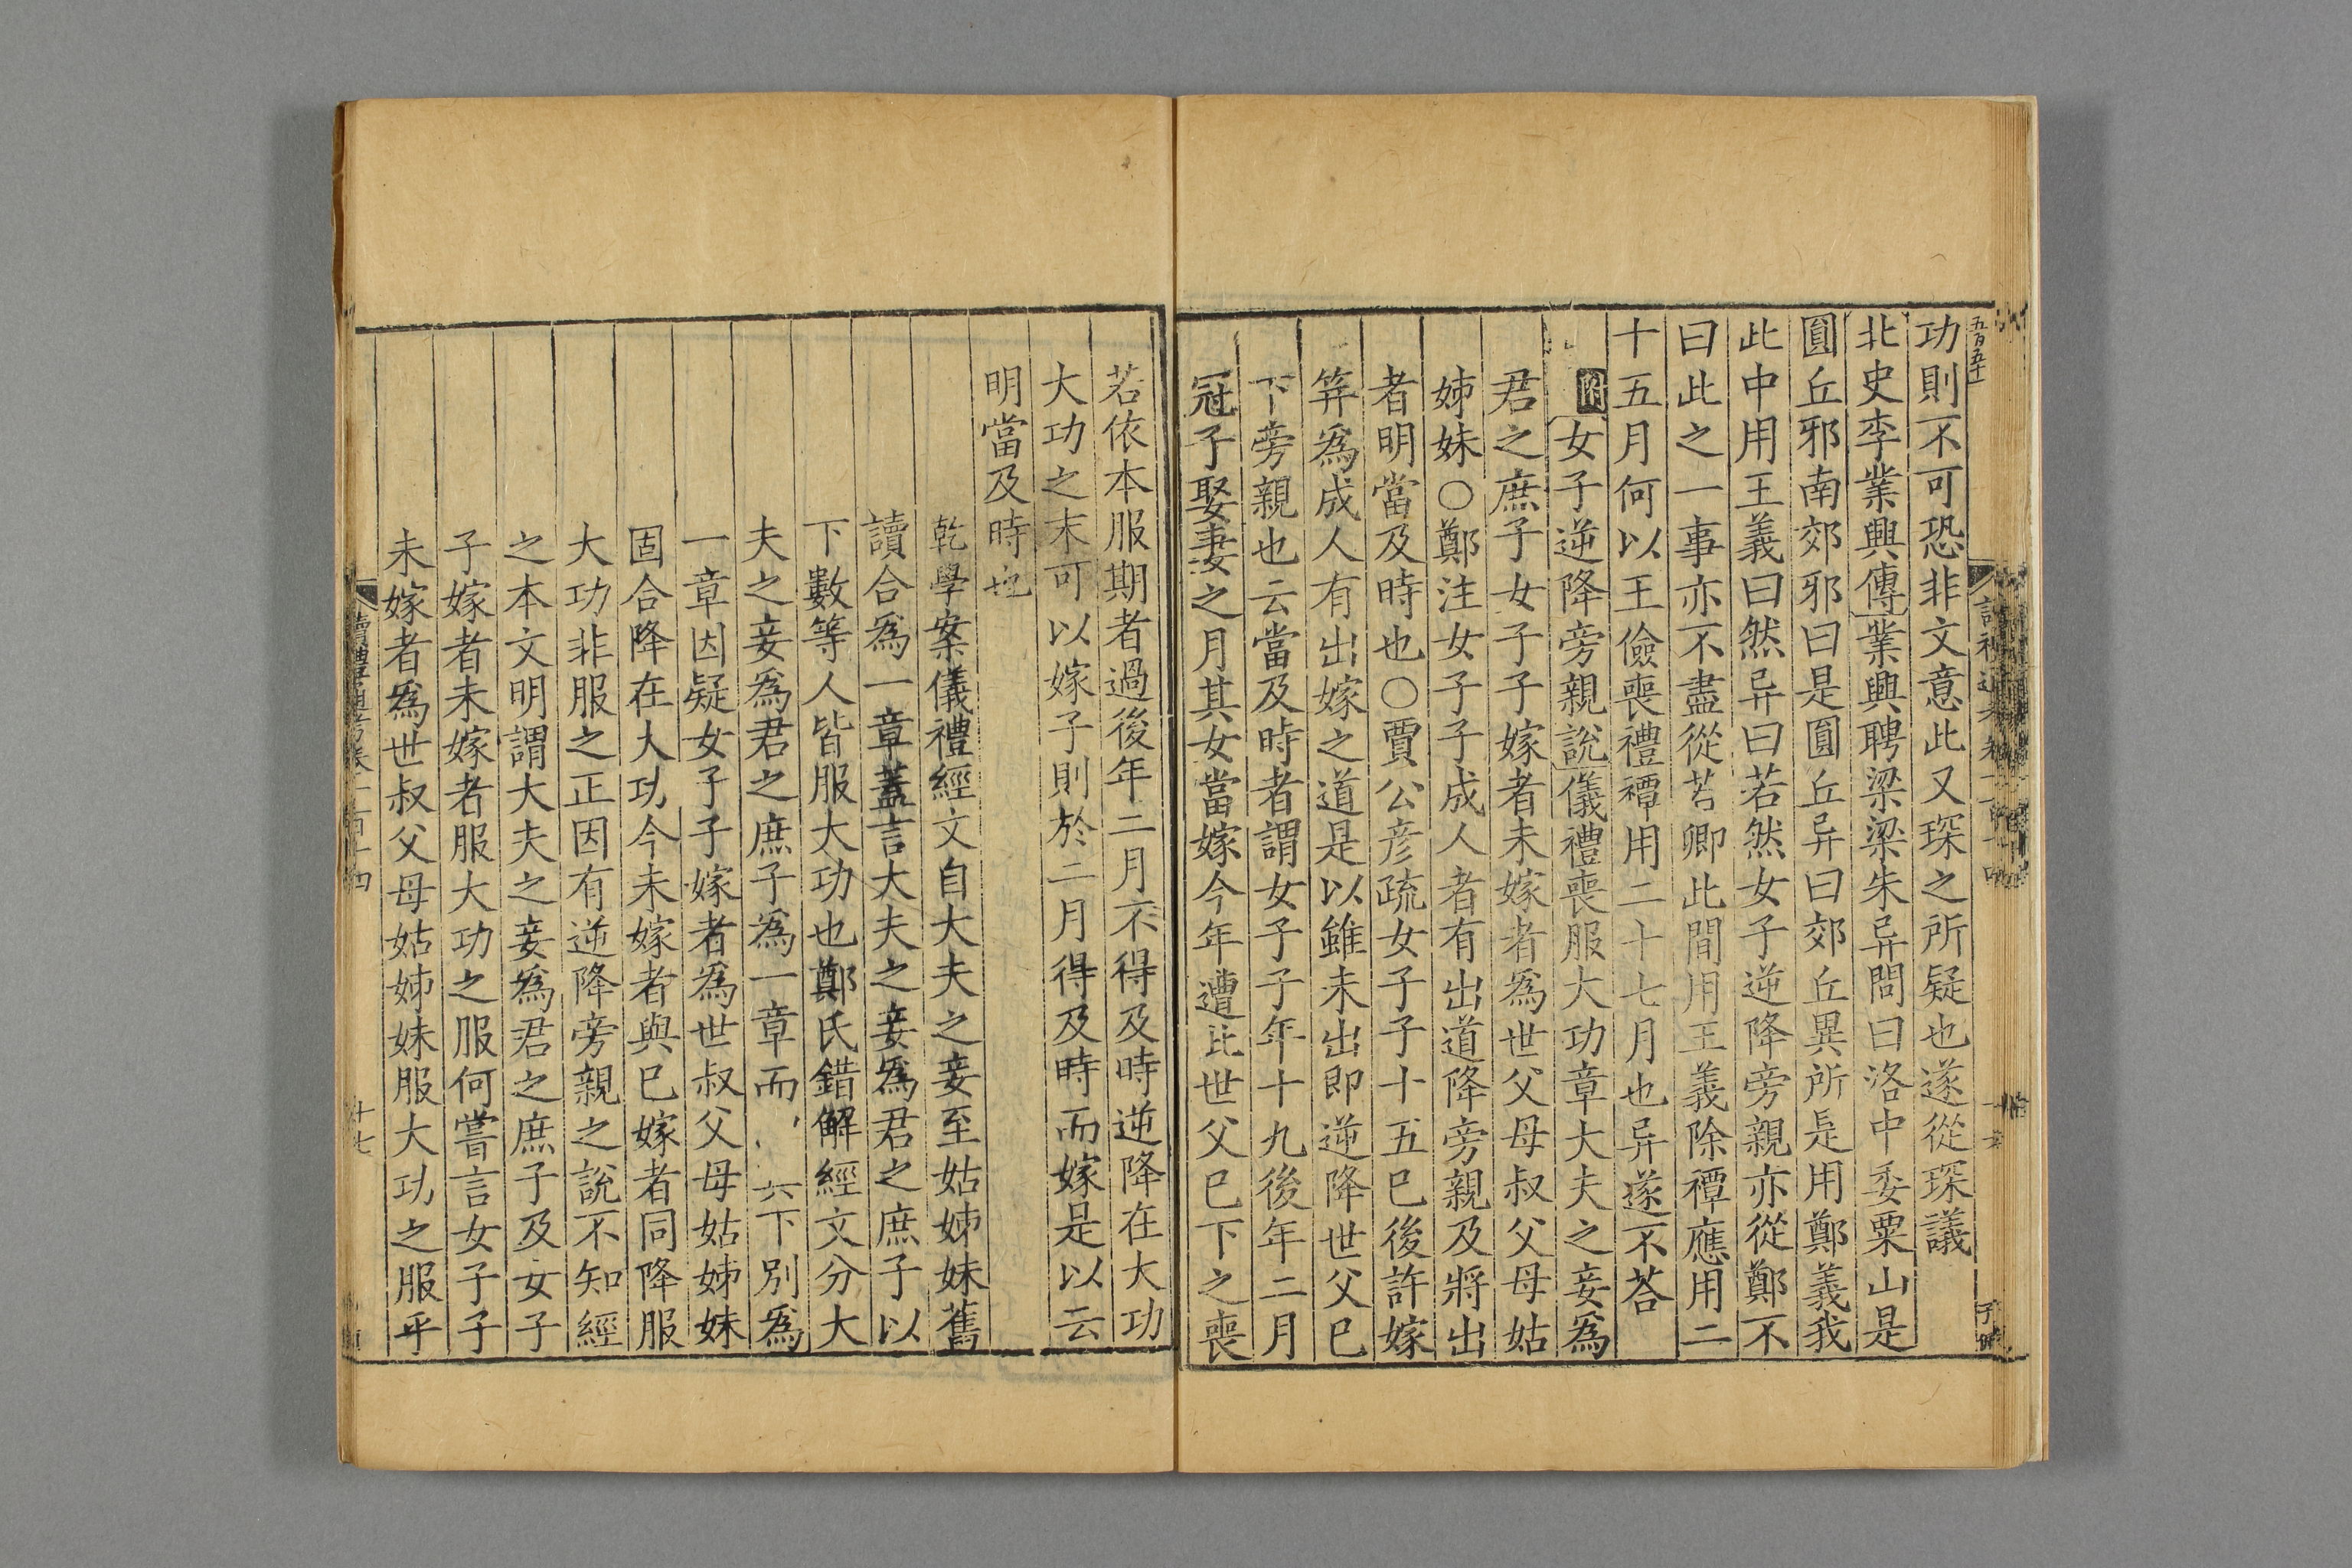 五百五十一
功則不可恐非文意此又琛之所疑也遂從琛議
北史李業興傳業興聘梁梁朱异問曰洛中委粟山是
圓丘邪南郊邪曰是圓丘异曰郊丘異所是用鄭義我
此中用王義曰然异曰若然女子逆降旁親亦從鄭不
曰此之一事亦不盡從若卿此間用王義除禫應用二
十五月何以王儉喪禮禫用二十七月也异遂不荅
附女子逆降旁親說儀禮喪服大功章大夫之妾爲
君之庶子女子子嫁者未嫁者爲世父母叔父母姑
姊妹○鄭注女子子成人者有出道降旁親及將出
者明當及時也○賈公彦疏女子子十五巳後許嫁
筓爲成人有出嫁之道是以雖未出即逆降世父巳
下旁親也云當及時者謂女子子年十九後年二月
冠子娶妻之月其女當嫁今年遭此世父巳下之喪
若依本服期者過後年二月不得及時逆降在大功
大功之末可以嫁子則於二月得及時而嫁是以云
明當及時也
乾學案儀禮經文自大夫之妾至姑姊妹舊
讀合爲一章蓋言大夫之妾爲君之庶子以
下數等人皆服大功也鄭氏錯解經文分大
夫之妾爲君之庶子爲一章而下別爲
一章因疑女子子嫁者爲世叔父母姑姊妹
固合降在大功今未嫁者與巳嫁者同降服
大功非服之正因有逆降旁親之說不知經
之本文明謂大夫之妾爲君之庶子及女子
子嫁者未嫁者服大功之服何嘗言女子子
未嫁者爲世叔父母姑姊妹服大功之服乎
讀禮通考卷一百十四
十七